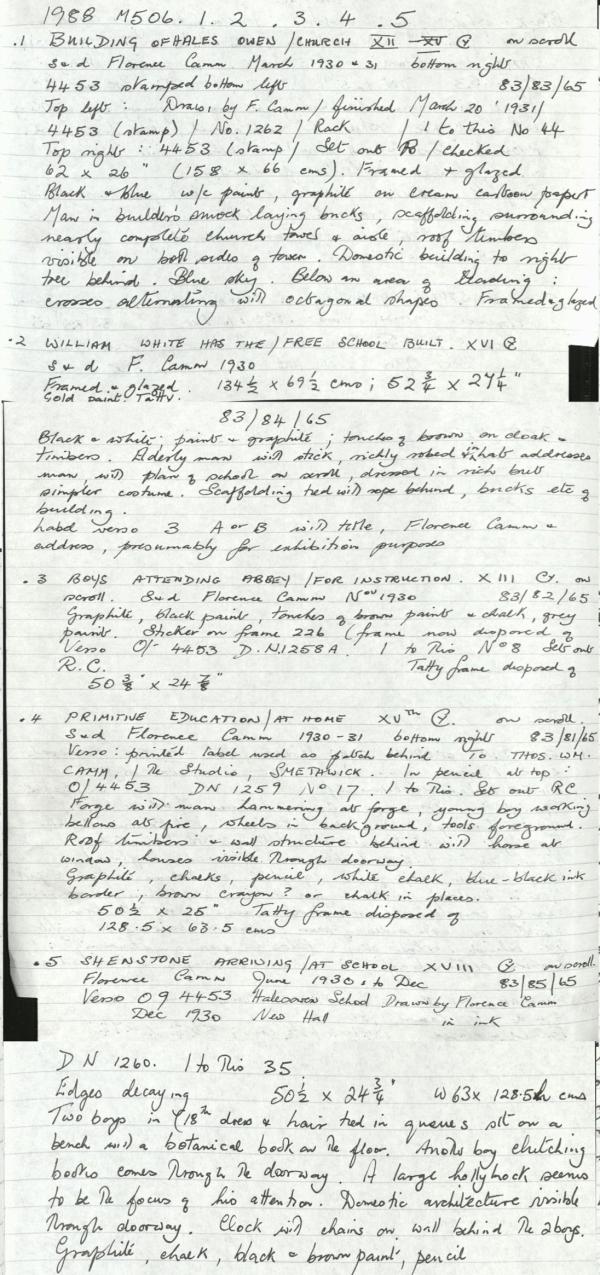 1988 M506. 1. 2 . 3. 4 . 5
.1 BUILDING OF HALES OWEN / CHURCH XII XV Cy on scroll
s & d Florence Camm March 1930 & 31 bottom right
4453 stamped bottom left 83/83/65
Top left : Drawn by F. Camm / finished March 20 '1931/
4453 (stamp) / No. 1262 / Rack / 1 to this No 44
Top right : 4453 (stamp / Set out / checked
62 x 26" (158 x 66 cms). Framed & glazed
Black & blue w/c paints, graphite on cream cartoon paper
Man in builder's smock laying bricks, scaffolding surrounding
nearly complete church tower & aisle, roof timbers
visible on both sides of tower. Domestic building to right
tree behind. Blue sky. Below an area of leading :
crosses alternating with octagonal shapes. Framed & glazed
.2 WILLIAM WHITE HAS THE / FREE SCHOOL BUILT. XVI Cy
s & d F. Camm 1930
Framed & glazed. 134½ x 69½ cms ; 52¾ x 27¼"
Gold paint. Tatty.
83/84/65
Black & white ; paint & graphite ; touches of brown on cloak &
timbers. Elderly man with stick, richly robed & in hat addresses
man, with plan of school on scroll, dressed in rich but
simpler costume. Scaffolding tied with rope behind, bricks etc of
building.
Label verso 3 A or B with title, Florence Camm &
address, presumably for exhibition purposes
.3 BOYS ATTENDING ABBEY / FOR INSTRUCTION. XIII Cy. on
scroll. S & d Florence Camm Nov 1930 83/82/65
Graphite, black paint, touches of brown paint & chalk, grey
paint. Sticker on frame 226 (frame now disposed of
Verso O/- 4453 D.N.1258A. 1 to This No 8 Set out
R.C. Tatty frame disposed of
50⅜" x 24⅞"
.4 PRIMITIVE EDUCATION / AT HOME XVTH Cy. on scroll.
S & d Florence Camm 1930-31 bottom right 83/81/65
Verso : printed label used as patch behind To THOS. WM.
CAMM, / The Studio, SMETHWICK. In pencil at top :
O/4453 DN 1259 No 17. 1 to This. Set out RC.
Forge with man hammering at forge, young boy working
bellows at fire, wheels in background, tools foreground.
Roof timbers & wall structure behind with horse at
window, houses visible through doorway.
Graphite, chalks, pencil, white chalk, blue-black ink
border, brown crayon? or chalk in places.
50½ x 25" Tatty frame disposed of
128.5 x 63.5 cms
.5 SHENSTONE ARRIVING / AT SCHOOL XVIII Cy on scroll.
Florence Camm June 1930 to Dec 83/85/65
Verso O 9 4453 Halesowen School Drawn by Florence Camm
Dec 1930 New Hall in ink
DN 1260. 1 to This 35
Edges decaying 50½ x 24¾" W 63 x 128.5h cms
Two boys in C18th dress & hair tied in queues sit on a
bench with a botanical book on the floor. Another boy clutching
books comes through the doorway. A large hollyhock seems
to be the focus of his attention. Domestic architecture visible
through doorway. Clock with chains on wall behind the 2 boys.
Graphite, chalk, black & brown paint, pencil